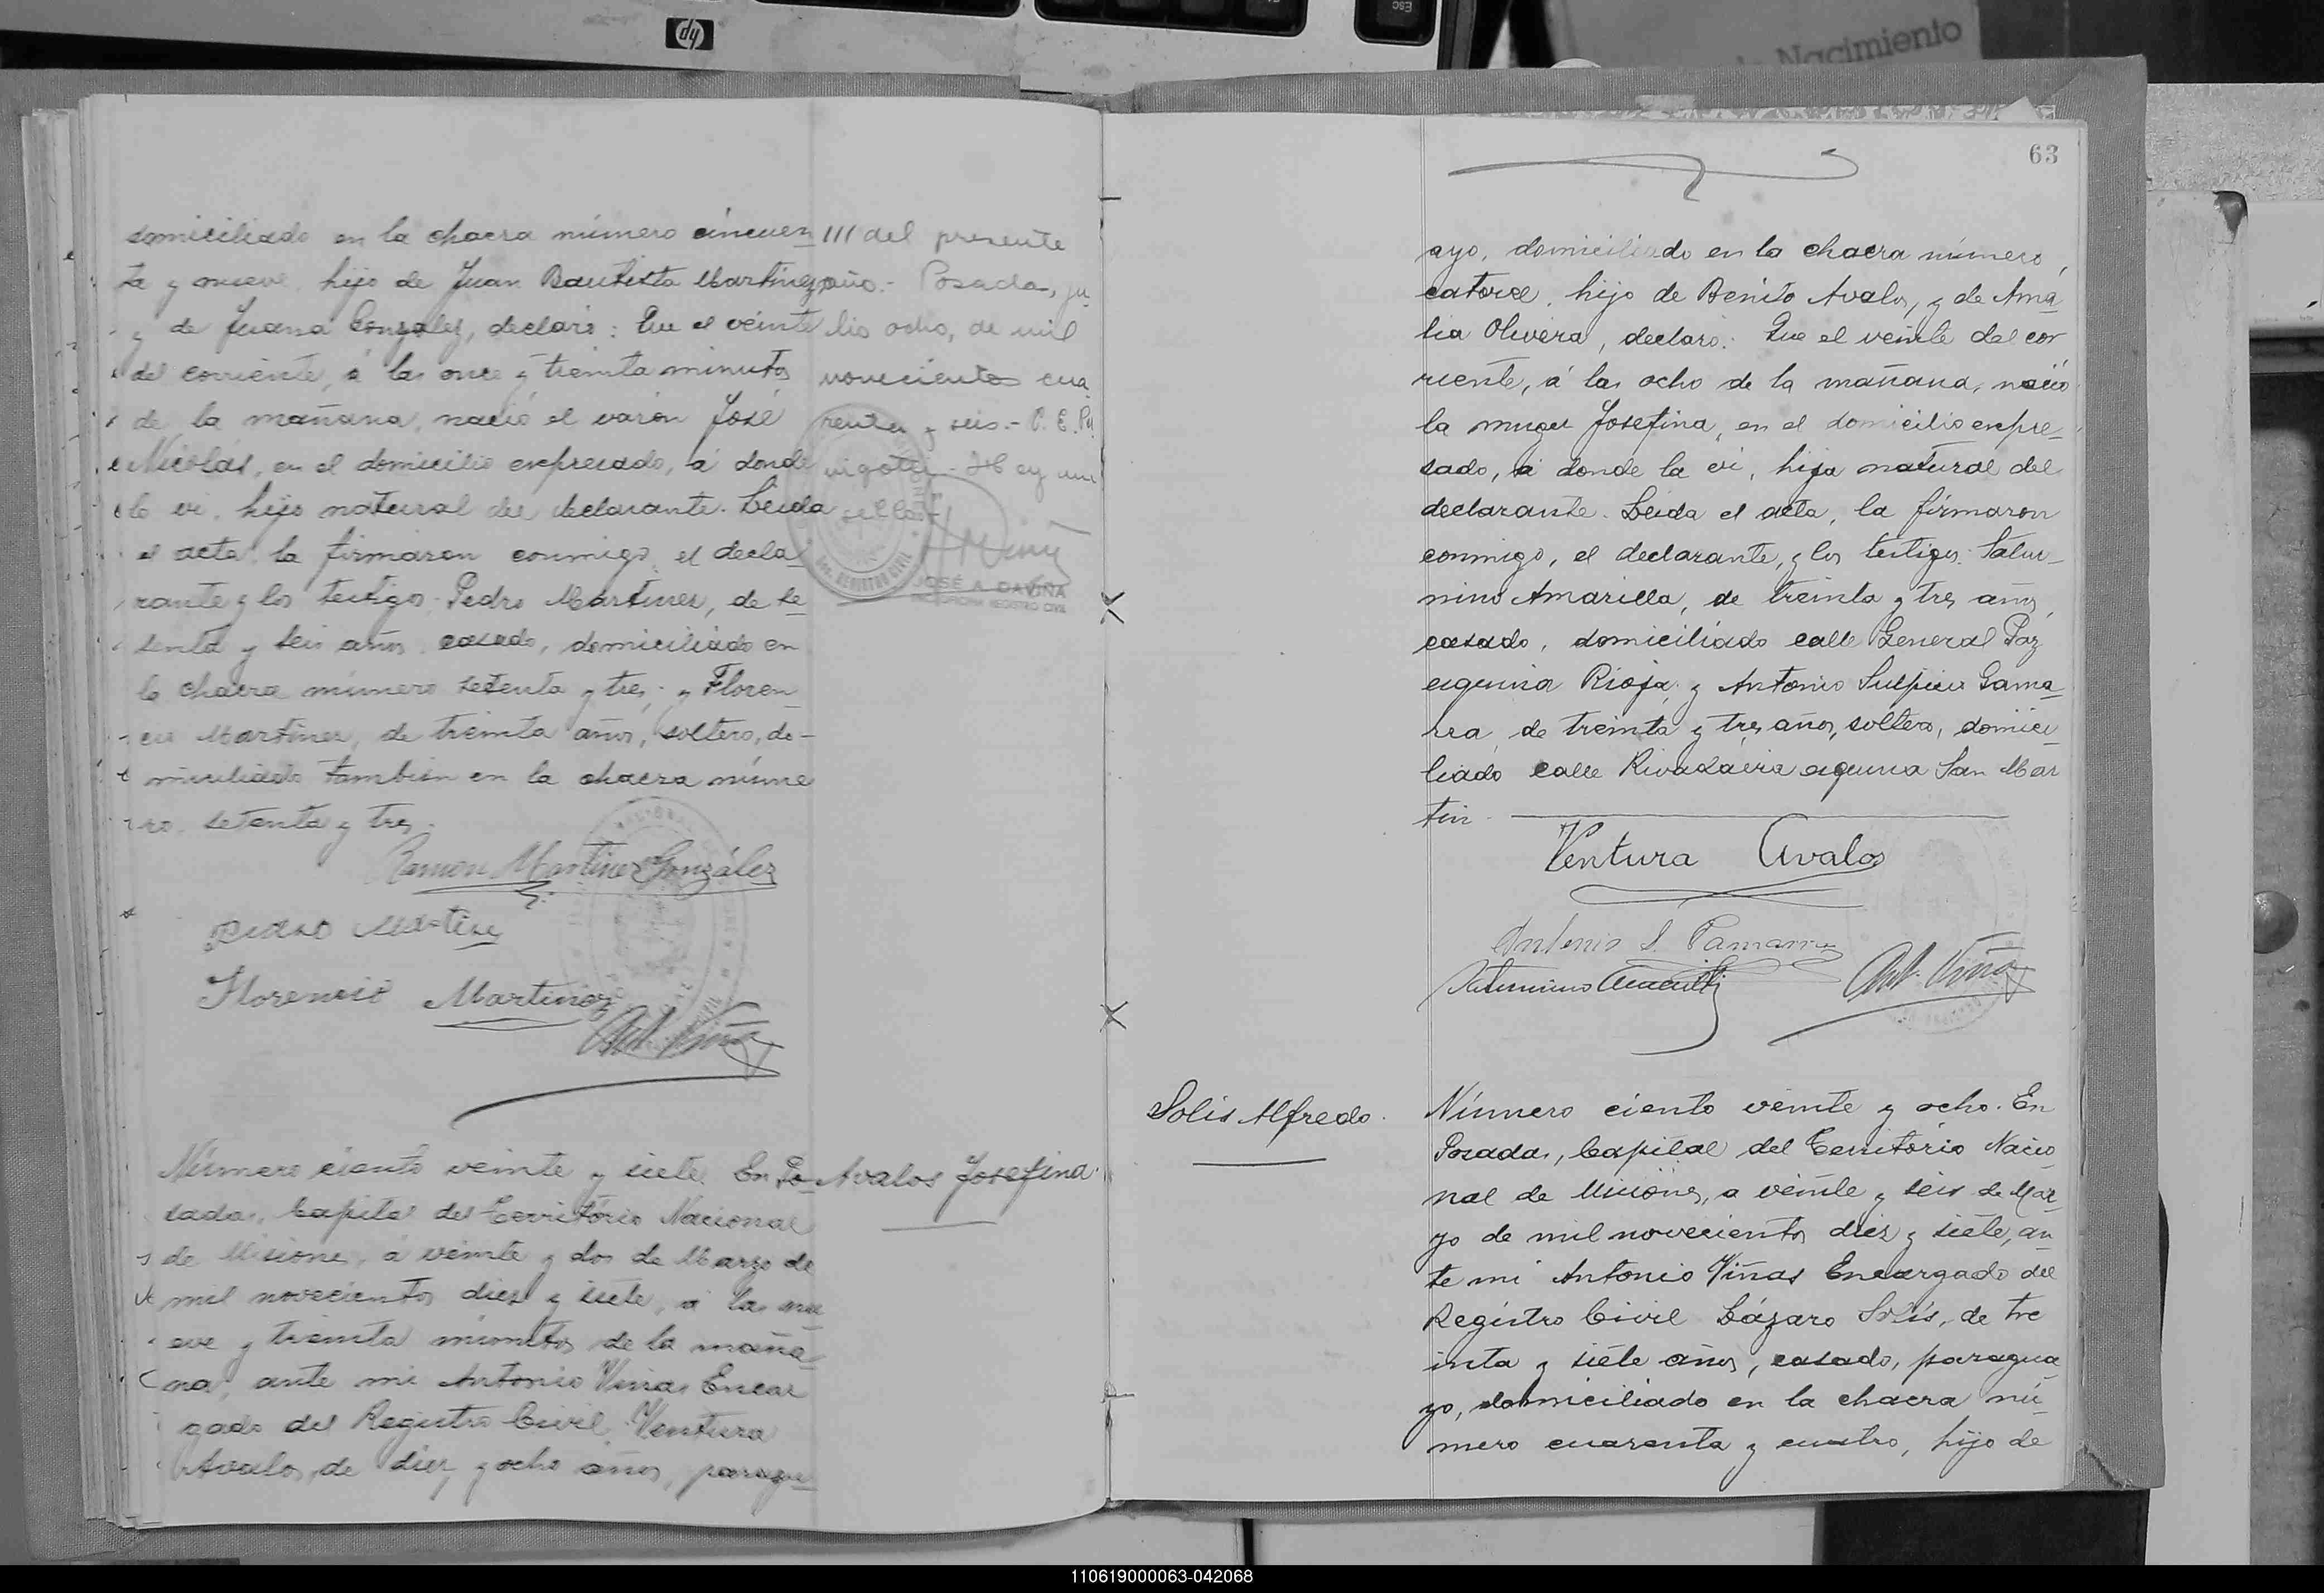 hp
ESC
Nacimiento
domiciliado en la chacra número cincuen
ta y nueve, hijo de Juan Bautista Martinez
y de Juana Gonzalez, declaró: Que el veinte
del corriente, á las once y treinta minutos
de la mañana, nació el varón José
Nicolás, en el domicilio expresado, á donde
lo vi, hijo natural del declarante. Leida
el acta, la firmaron conmigo, el decla
rante y los testigos: Pedro Martinez, de se
senta y seis años, casado, domiciliado en
la chacra número setenta y tres; y Floren
cio Martinez, de treinta años, soltero, do-
miciliado tambien en la chacra núme
ro setenta y tres.
Ramon Martinez González
Pedro Martinez
Florencio Martinez
Ant. Viñas
/// del presente
año.- Posadas, ju
lio ocho, de mil
novecientos cua
renta y seis.- C. E.
Hay un
sello
JOSÉ A. DAVIÑA
REGISTRO CIVIL
Número ciento veinte y siete. En Po
sadas, Capital del Territorio Nacional
de Misiones, á veinte y dos de Marzo de
mil novecientos diez y siete, á las nu
eve y treinta minutos de la maña
na, ante mi Antonio Viñas Encar
gado del Registro Civil, Ventura
Avalos, de diez y ocho años, paragu
Avalos Josefina.
63
ayo, domiciliado en la chacra número
catorce, hijo de Benito Avalos, y de Ama
lia Olivera, declaró: Que el veinte del cor
riente, á las ocho de la mañana, nació
la muger Josefina, en el domicilio expre
sado, á donde la vi, hija natural del
declarante. Leida el acta, la firmaron
conmigo, el declarante, y los testigos: Satur
nino Amarilla, de treinta y tres años,
casado, domiciliado calle General Paz
esquina Rioja; y Antonio Sulpicio Gama
rra, de treinta y tres años, soltero, domici
liado calle Rivadavia esquina San Mar
tin.
Ventura Avalos
Antonio S. Gamarra
Saturnino Amarilla
Ant. Viñas
Solis Alfredo.
Número ciento veinte y ocho. En
Posadas, Capital del Territorio Nacio
nal de Misiones, a veinte y seis de Mar
zo de mil novecientos diez y siete, an
te mi Antonio Viñas Encargado del
Registro Civil Lázaro Solís, de tre
inta y siete años, casado, paragua
yo, domiciliado en la chacra nú
mero cuarenta y cuatro, hijo de
110619000063-042068